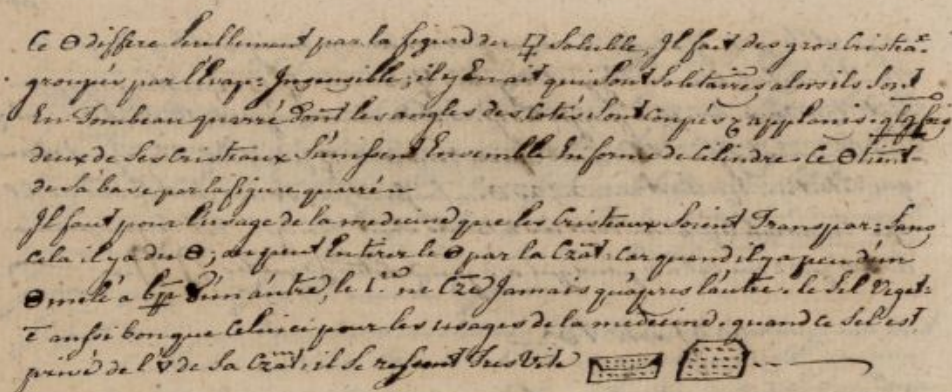 Ce Θ differe seullement par la figure du 🜿 soluble, Il fait des gros cristx
groupés par l'Evap: Insensible; il y En a it qui sont solitaires alors ils sont
En Tombeau quarré dont les angles des cotés sont coupés & applanis. qlqfois
deux de ses cristeaux s'unissent Ensemble En forme de Cilindre. Ce Θ tient
de sa base par la figure quarrée
Il faut pour l'usage de la medecine que les Cristeaux soient Transpar: sans
cela il y a du Θ; on peut En tirer le Θ par la Czat: car quand il y a peu d'un
Θ mélé a bp d'un autre, le 1.er ne Cze Jamais qu'apres l'autre. le sel veget:
É aussi bon que celui ci pour les usages de la medecine. quand ce sel est
privé de l'🜄 de sa Czat: il se ressout Tres vite